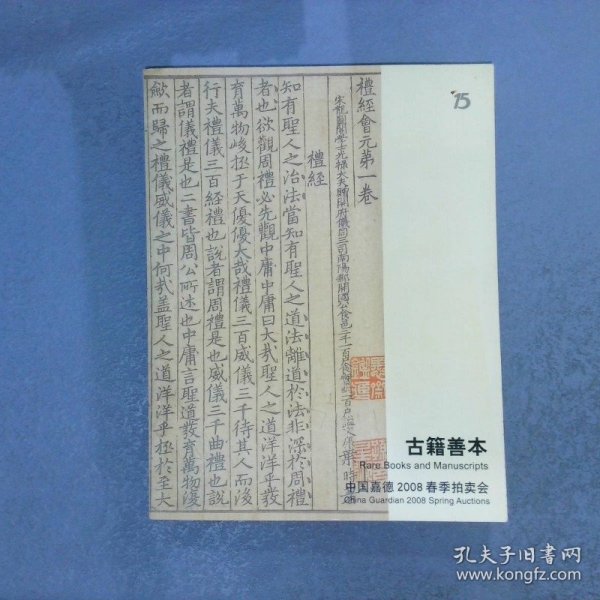 禮經會元第一卷
禮經
知有聖人之治法當知有聖人之道法離道於法非深於周禮
者也欲觀周禮必先觀中庸中庸曰大哉聖人之道洋洋乎發
育萬物峻極于天優優大哉禮儀三百威儀三千待其人而後
行夫禮儀三百經禮也說者謂周禮是也威儀三千曲禮也說
者謂儀禮是也二書皆周公所述也中庸言聖道發育萬物優
歟而歸之禮儀威儀之中何哉蓋聖人之道洋洋乎極於至大
15
古籍善本
Rare Books and Manuscripts
中国嘉德 2008 春季拍卖会
China Guardian 2008 Spring Auctions
孔夫子旧书网
www.kongfz.com